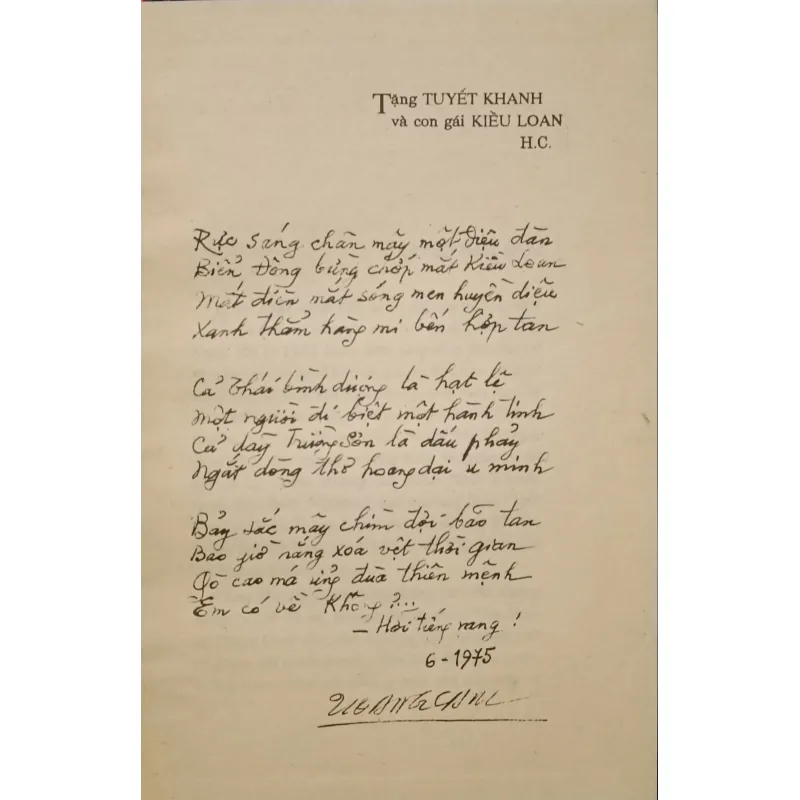 Tặng TUYẾT KHANH
và con gái KIỀU LOAN
H.C.
Rực sáng chân mây một điệu đàn
Biển Đông bừng chớp mắt Kiều Loan
Mắt điên mắt sóng men huyền diệu
Xanh thẳm hàng mi bến hợp tan
Cả Thái bình dương là hạt lệ
Một người đi biệt một hành tinh
Cả dãy Trường Sơn là dấu phảy
Ngắt dòng thơ hoang dại u minh
Bảy sắc mây chìm đợi bão tan
Bao giờ nắng xoá vệt thời gian
Gò cao má ửng đùa thiên mệnh
Em có về Không?...
– Hỡi tiếng vang!
6-1975
HOANGCAM